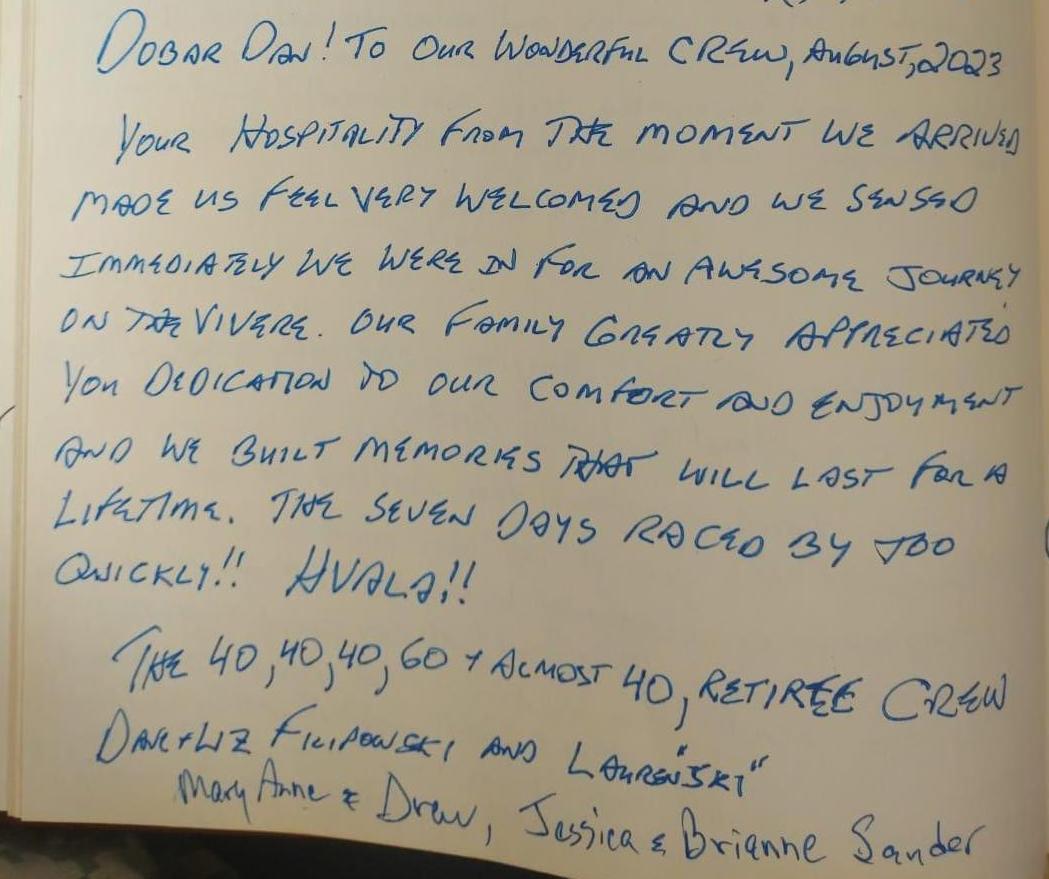 DOBAR DAN! TO OUR WONDERFUL CREW, AUGUST, 2023
YOUR HOSPITALITY FROM THE MOMENT WE ARRIVED
MADE US FEEL VERY WELCOMED AND WE SENSED
IMMEDIATELY WE WERE IN FOR AN AWESOME JOURNEY
ON THE VIVERE. OUR FAMILY GREATLY APPRECIATED
YOU DEDICATION TO OUR COMFORT AND ENJOYMENT
AND WE BUILT MEMORIES THAT WILL LAST FOR A
LIFETIME. THE SEVEN DAYS RACED BY TOO
QUICKLY!! HVALA!!
THE 40, 40, 40, 60 + ALMOST 40, RETIREE CREW
DAVE + LIZ FILIPOWSKI AND LAUREN "SKI"
Mary Anne & Drew, Jessica & Brianne Sander